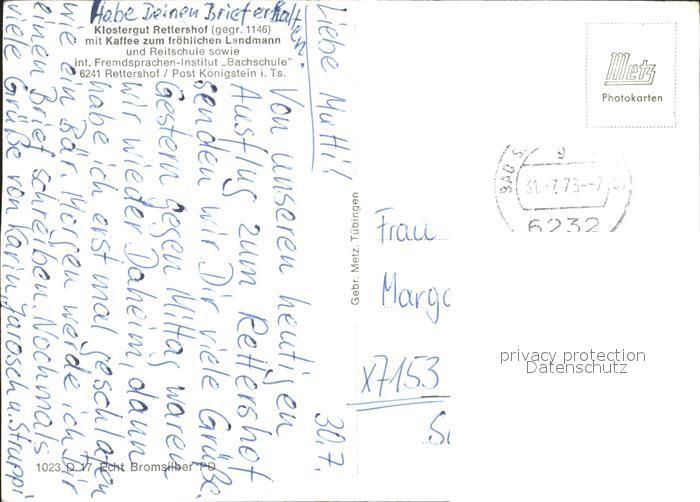 Habe Deinen Brief erhalten.
Klostergut Rettershof (gegr. 1146)
mit Kaffee zum fröhlichen Landmann
und Reitschule sowie
int. Fremdsprachen-Institut „Bachschule"
6241 Rettershof / Post Königstein i. Ts.
30.7.
Liebe Mutti!
Von unseren heutigen
Ausflug zum Rettershof
senden wir Dir viele Grüße.
Gestern gegen Mittag waren
wir wieder Daheim, dann
habe ich erst mal geschlafen
wie ein Bär. Morgen werde ich Dir
einen Brief schreiben. Nochmals
viele Grüße von Karin, Jarosch u. Struppi
1023 D 17 Echt Bromsilber PD
Gebr. Metz, Tübingen
Metz
Photokarten
BAD S
31.-7.73--7
6232
Frau
Marga
X7153
privacy protection
Datenschutz